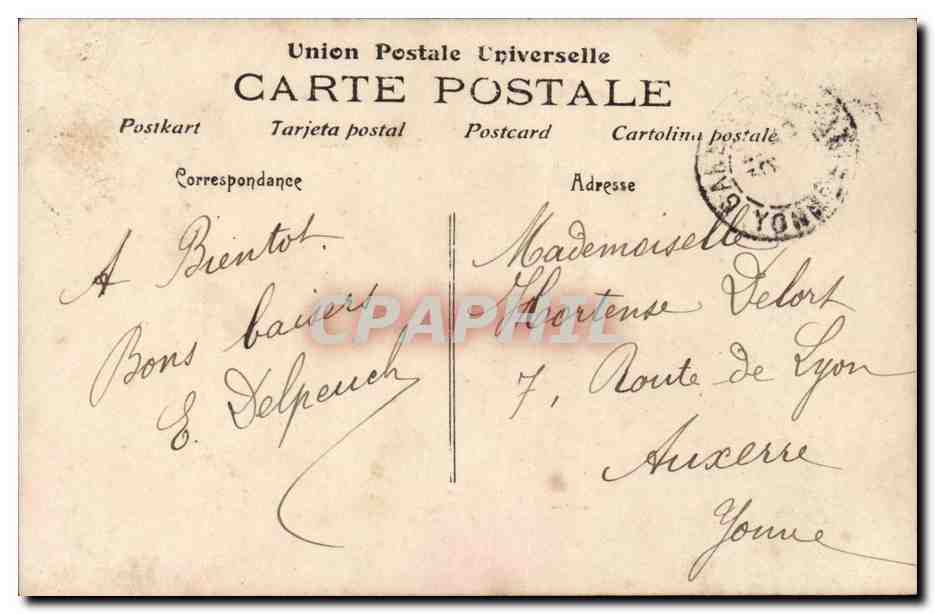 Union Postale Universelle
CARTE POSTALE
Postkart Tarjeta postal Postcard Cartolina postale
Correspondance
Adresse
A Bientot.
Bons baisers
E. Delpeuch
Mademoiselle
Hortense Delort
7, Route de Lyon
Auxerre
Yonne
CPAPHIL